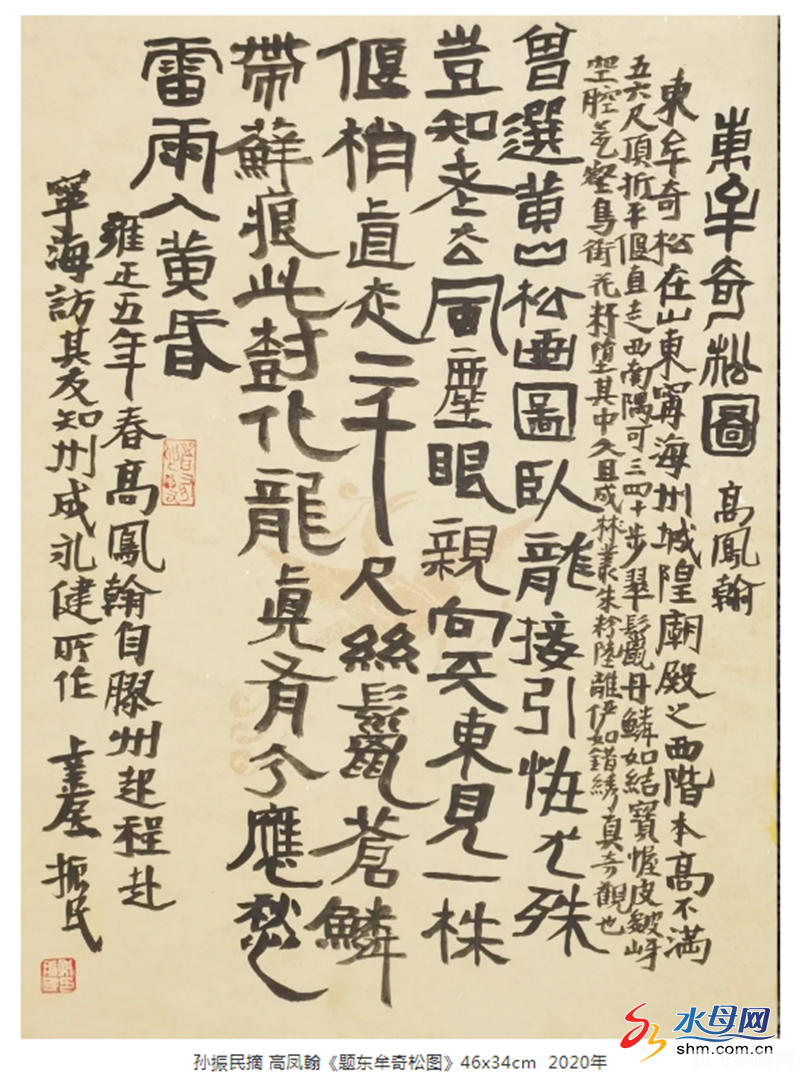 東牟奇松圖 高鳳翰
東牟奇松在山東寧海州城隍廟殿之西階本高不滿
五六尺頂折平偃直走西南隅可三四十步翠鬣丹鱗如結寶幄皮皴岈
空腔 壑鳥銜花籽堕其中久且成林叢朱粉陸離伊如錯綉真奇觀也
曾選黄山松画圖卧龍接引怪尤殊
豈知老去風塵眼親向天東見一株
偃梢直走二千尺絲鬣蒼鱗
帶蘚痕此樹化龍真有今應愁
雷雨入黄昏
雍正五年春高鳳翰自膠州起程赴
寧海訪其友知州成永健所作 振民
水母网
shm.com.cn
孙振民摘 高凤翰《题东牟奇松图》46x34cm 2020年